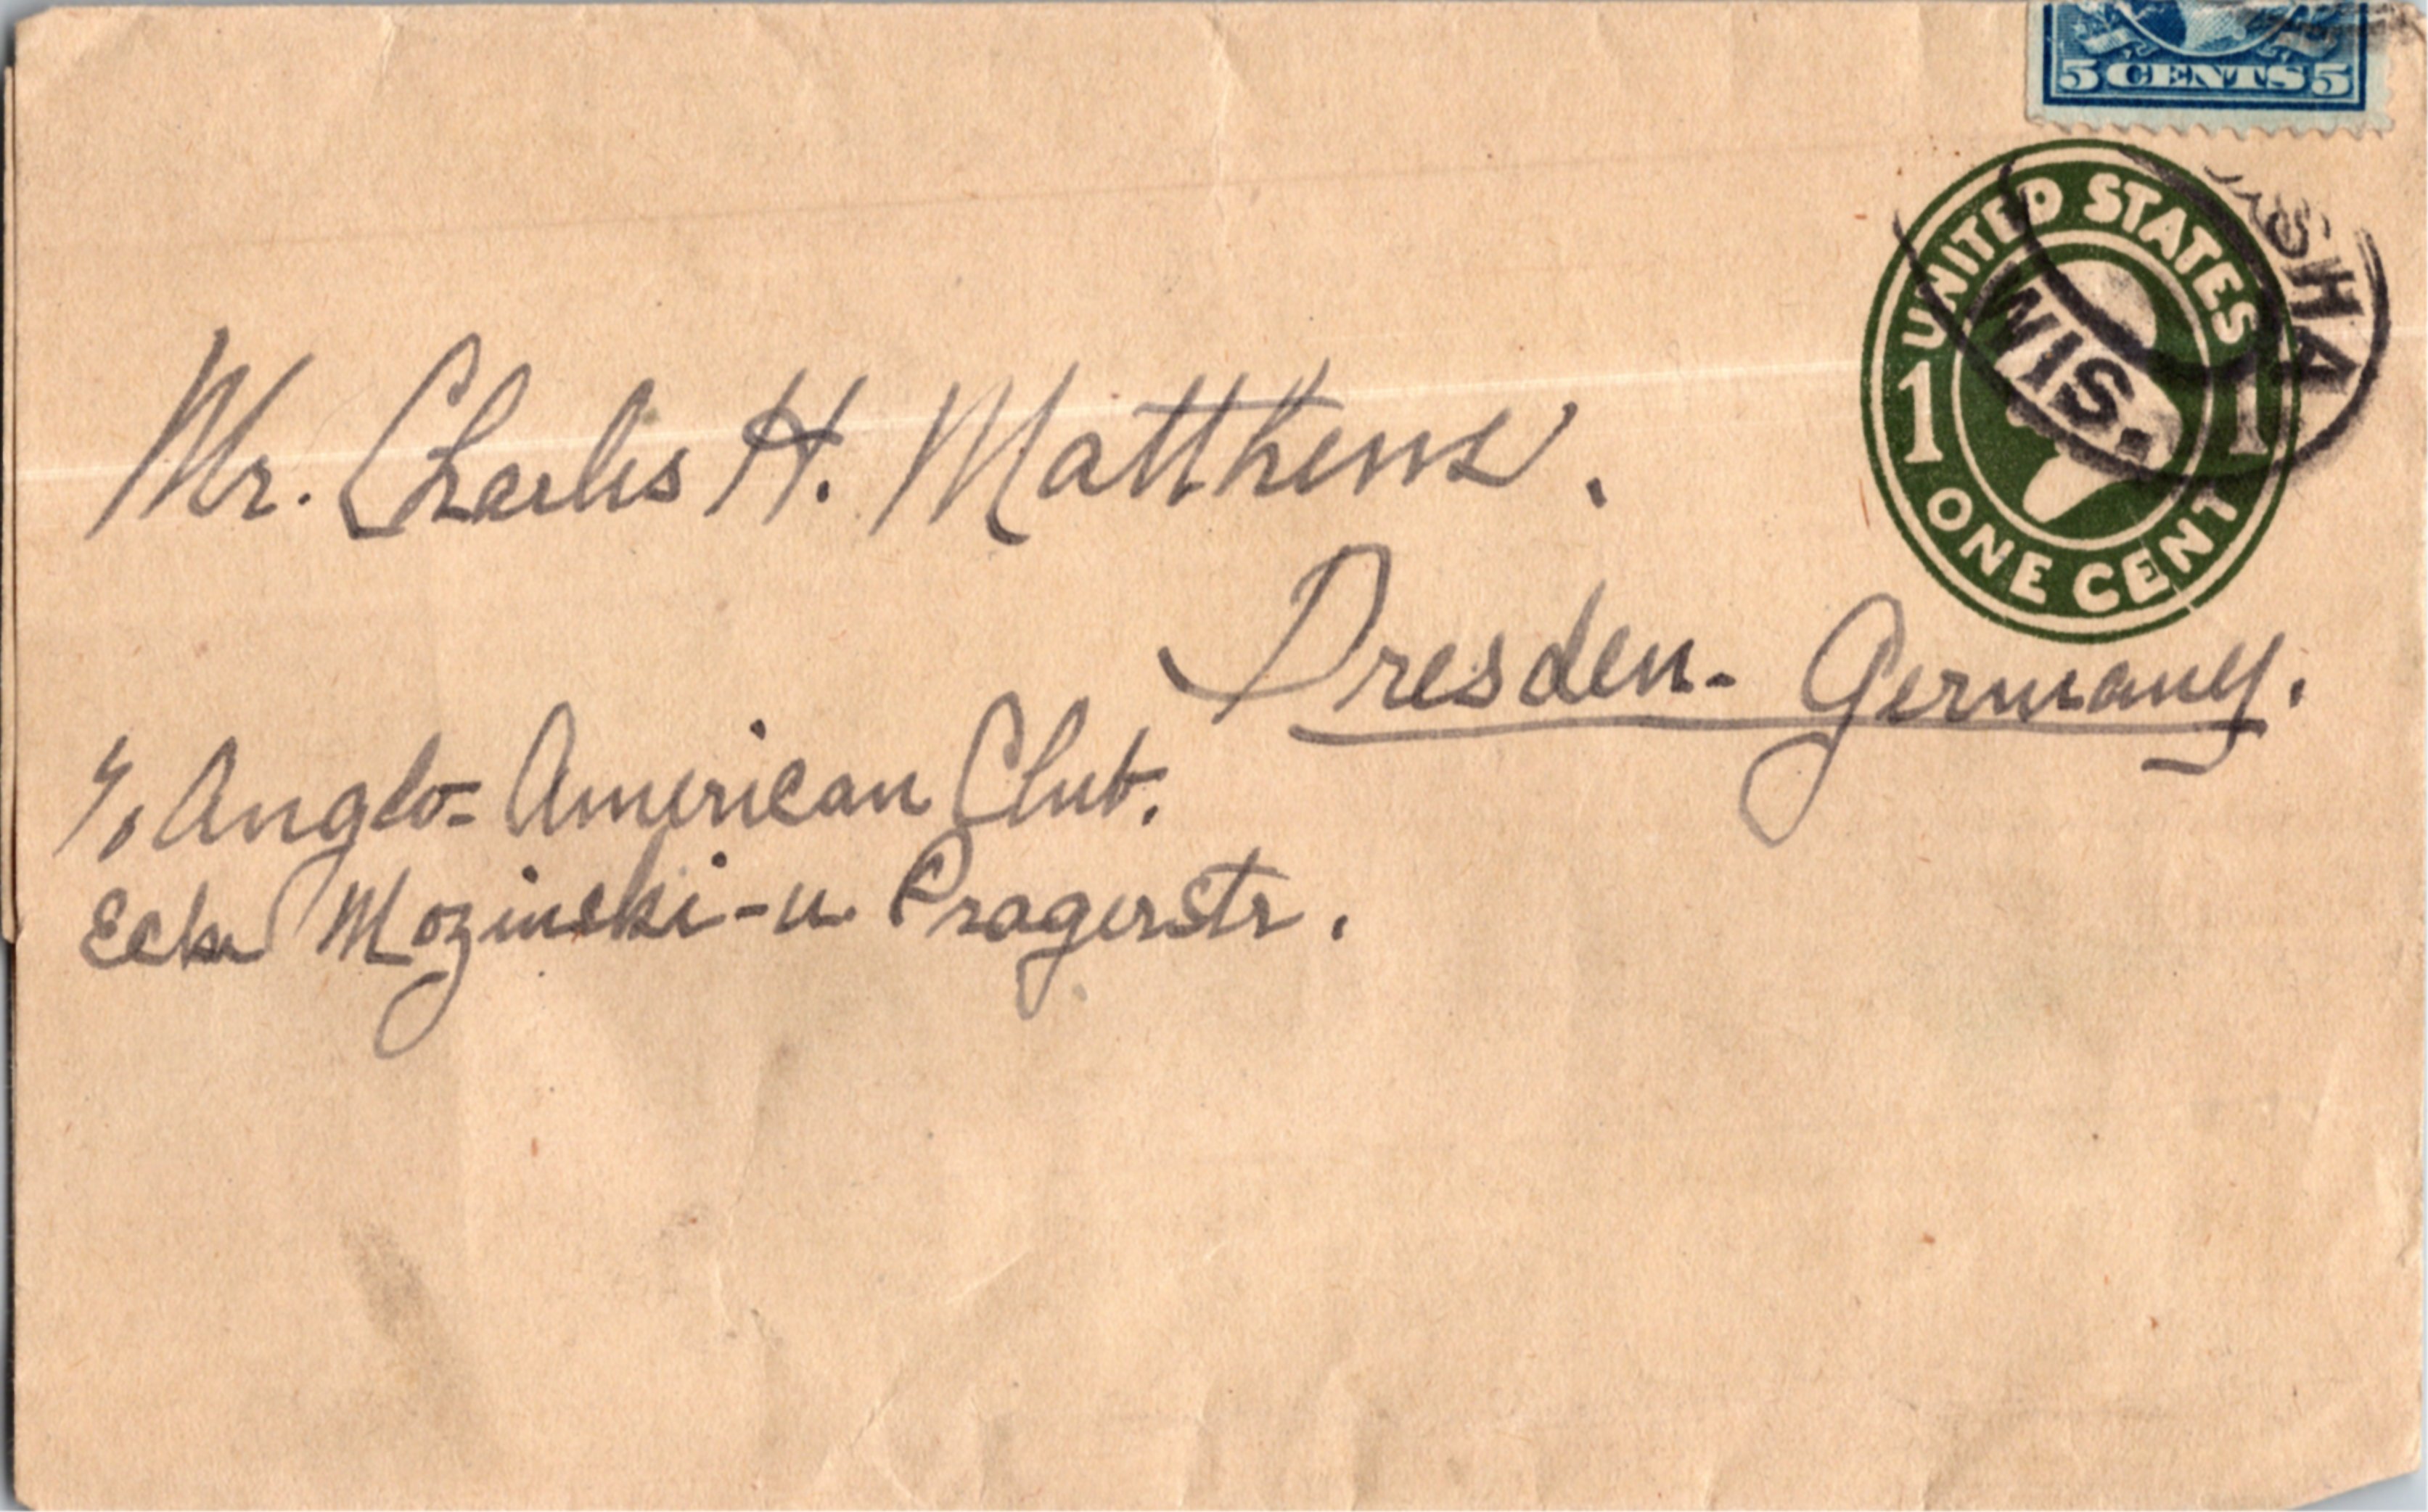 5 CENTS 5
UNITED STATES
1 1
ONE CENT
SHA
WIS.
Mr. Charles H. Matthews.
Dresden- Germany.
c/o Anglo-American Club.
Ecke Mozinski-u Pragerstr.